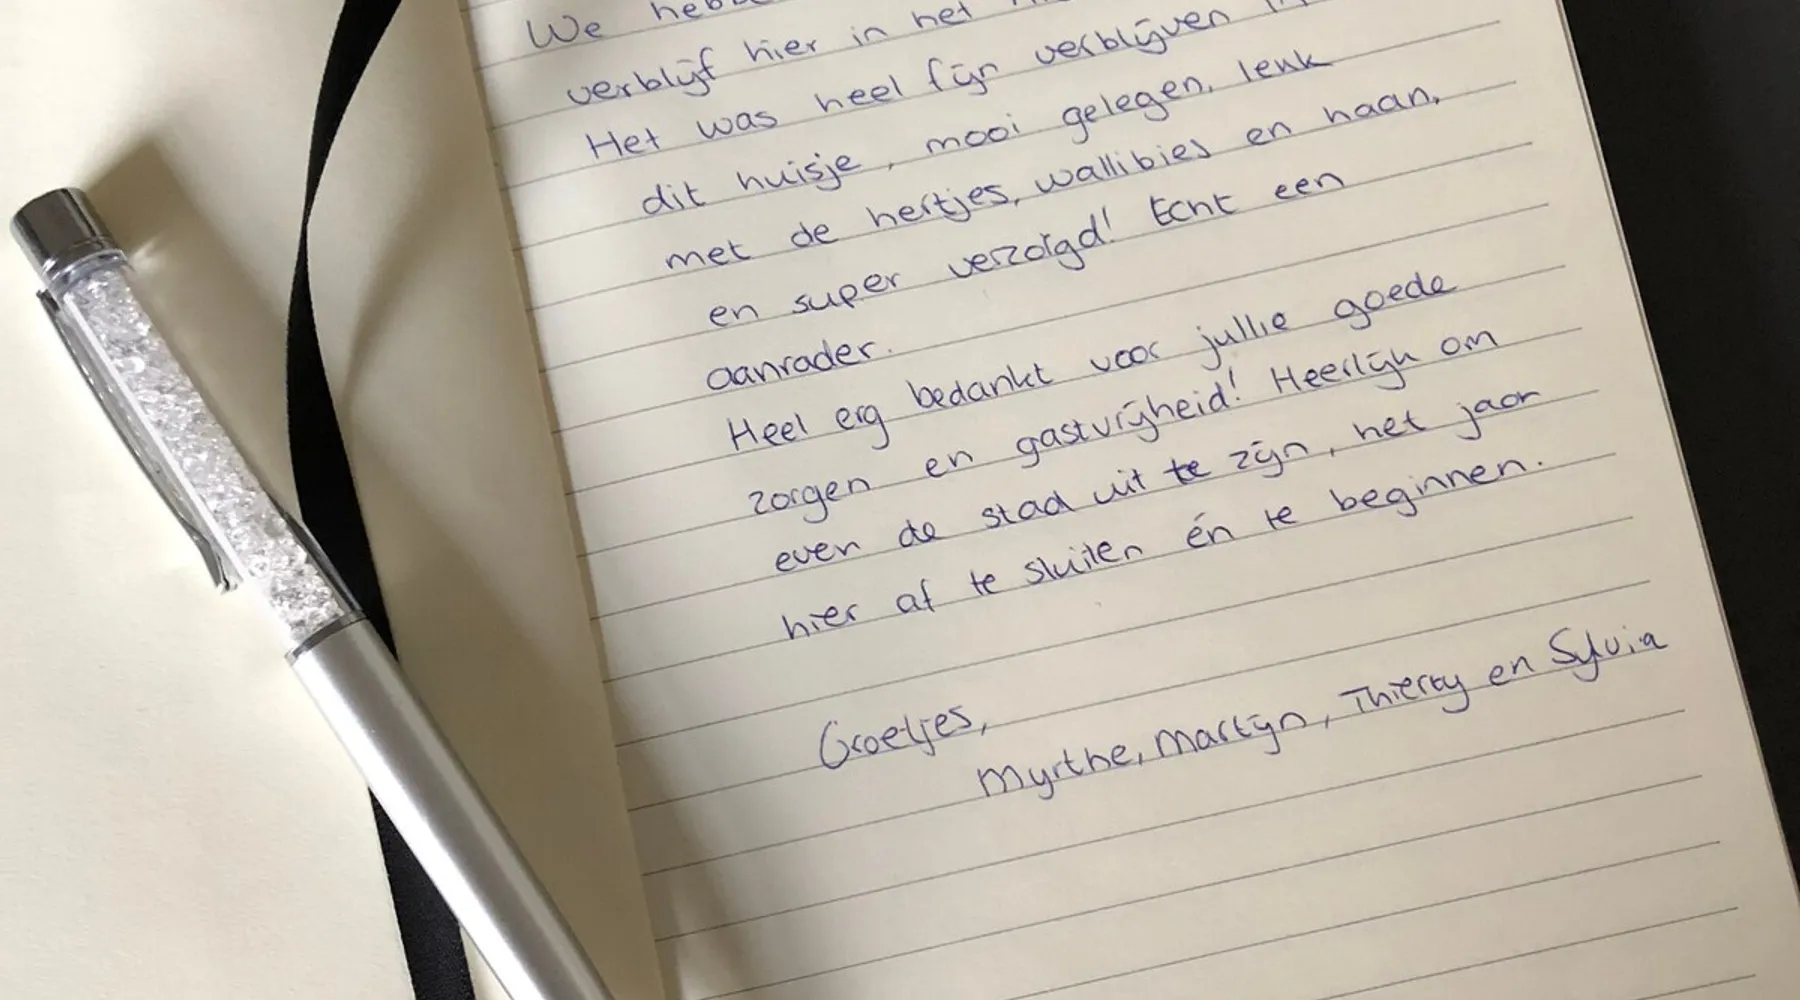 We hebb
verblijf hier in het
Het was heel fijn verblijven in
dit huisje, mooi gelegen, leuk
met de hertjes, wallibies en haan,
en super verzorgd! Echt een
aanrader.
Heel erg bedankt voor jullie goede
zorgen en gastvrijheid! Heerlijk om
even de stad uit te zijn, het jaar
hier af te sluiten én te beginnen.
Groetjes,
Myrthe, Martijn, Thierry en Sylvia